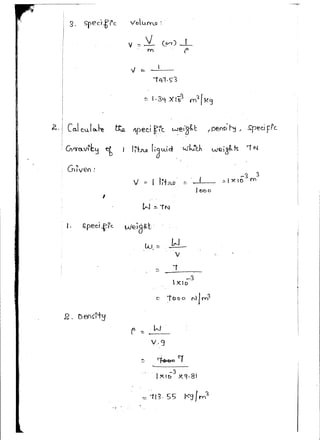 3. Specific volume :
V = V/m (or) 1/ρ
V = 1/747.53
= 1.34 X 10^-3 m³/kg
2. Calculate the specific weight, density, specific
Gravity of 1 litre liquid which weighs 7N
Given :
V = 1 litre = 1/1000 = 1 x 10^-3 m³
W = 7N
1. Specific weight
w = W/V
= 7/1x10^-3
= 7000 N/m³
2. Density
ρ = W/V.g
= 7/1x10^-3 x 9.81
= 713.55 kg/m³